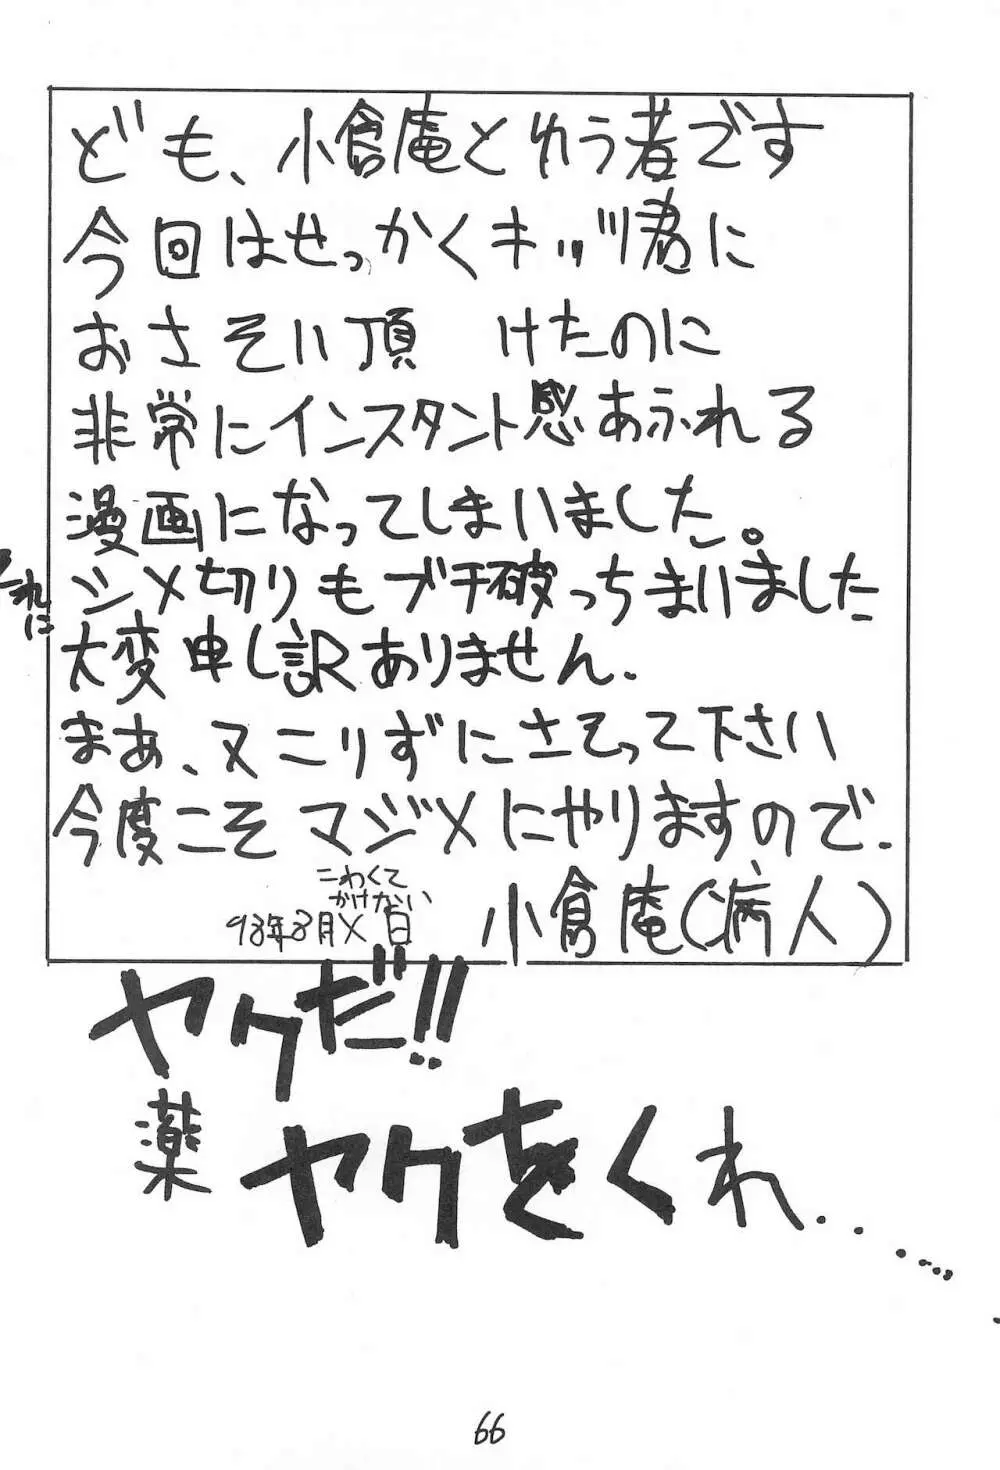 ども、小倉庵とゆう者です
今回はせっかくキッヅ君に
おさそい頂　けたのに
非常にインスタント感あふれる
漫画になってしまいました。
それに
シメ切りもブチ破っちまいました
大変申し訳ありません.
まあ、又こりずにさそって下さい
今度こそマジメにやりますので.
こわくて
かけない
93年3月X日
小倉庵(病人)
ヤクだ!!
薬
ヤクをくれ........
66